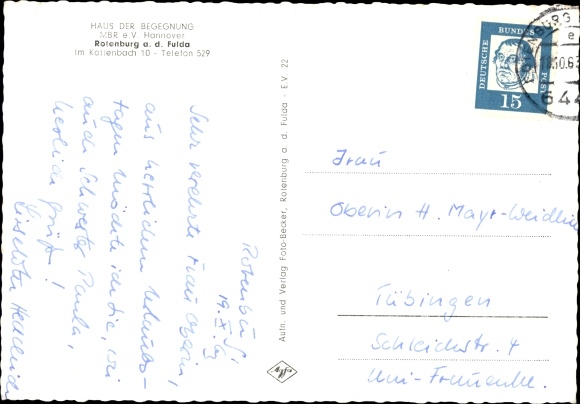 HAUS DER BEGEGNUNG
MBR e.V. Hannover
Rotenburg a. d. Fulda
Im Kottenbach 10 - Telefon 529
Rotenburg,
19. X. 63
Sehr verehrte Frau Oberin,
aus herrlichen Urlaubs-
tagen möchte ich Sie, wie
auch Schwester Paula,
herzlich grüßen!
Liselotte
Autn. und Verlag Foto-Becker, Rotenburg a. d. Fulda - E.V. 22
Agfa
DEUTSCHE BUNDESPOST
15
644
Frau
Oberin H. Mayr-Weidlin
Tübingen
Schleichstr. 4
Uni-Frauenkl.